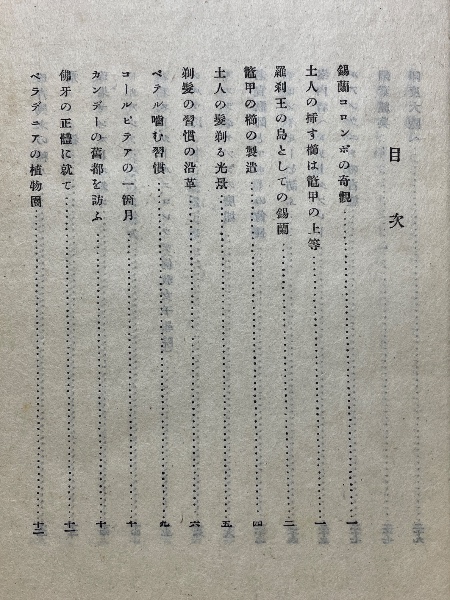 目次
錫蘭コロンボの奇觀……一
土人の揷す櫛は鼈甲の上等……一
羅刹王の島としての錫蘭……二
鼈甲の櫛の製造……四
土人の髮剃る光景……五
剃髮の習慣の沿革……六
ベテル嚙む習慣……九
コールピテアの一箇月……十
カンデーの舊都を訪ふ……十
佛牙の正體に就て……十一
ペラデニアの植物園……十二